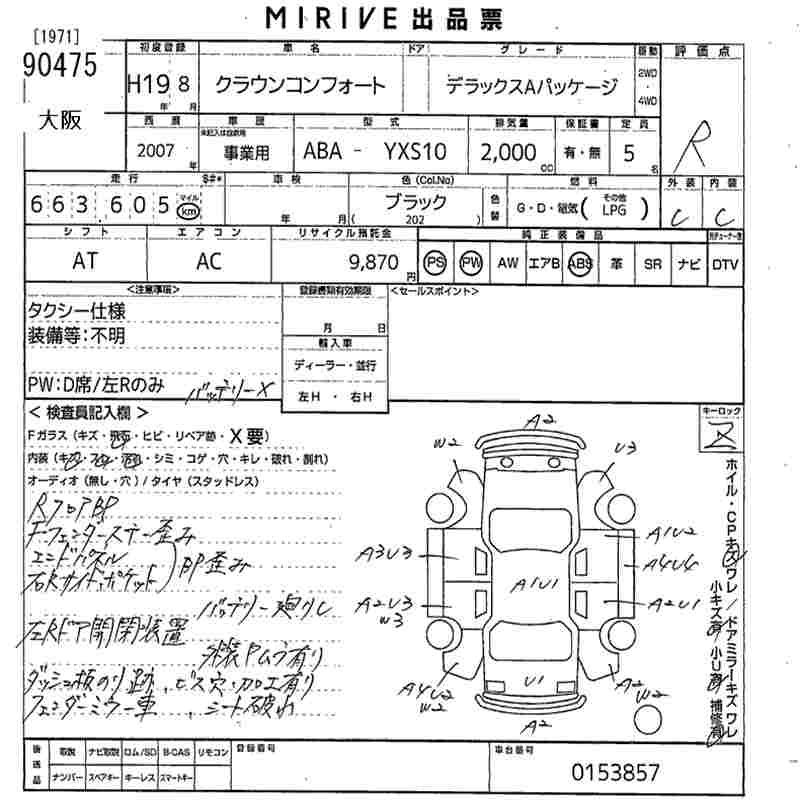 MIRIVE 出品票
[1971]
90475
大阪
初度登録 車名 ドア グレード 駆動 評価点
H19 8 年 月 クラウンコンフォート デラックスAパッケージ 2WD・4WD
R
西暦 車歴 型式 排気量 保証書 定員
未記入は自家用
2007 年 事業用 ABA - YXS10 2,000 cc 有・無 5 名
走行 $#* 車検 色(Col.No) 燃料 外装 内装
663,605 マイル km 年 月 ブラック (202) 色替 G・D・電気( その他 LPG ) C C
シフト エアコン リサイクル預託金 純正装備品
AT AC 9,870 円 PS PW AW エアB ABS 革 SR ナビ DTV
<注意事項> 登録書類有効期限 <セールスポイント>
タクシー仕様
装備等:不明
月 日
輸入車
ディーラー・並行
左H ・ 右H
PW:D席/左Rのみ バッテリーX
<検査員記入欄>
キーロック
Fガラス(キズ・飛石・ヒビ・リペア跡・X要)
内装(キズ・スレ・汚れ・シミ・コゲ・穴・キレ・破れ・割れ)
オーディオ(無し・穴)/タイヤ(スタッドレス)
RフロアBP
Fフェンダーステー歪み
エンドパネル
右Rサイドポケット BP歪み
バッテリー廻りし
左Rドア開閉装置
外装PムラA有り
ダッシュ板のり跡、ビス穴・加工有り
フェンダーミラー車、シート破れ
A2
W2
U3
A3U3
A1U2
A4U4
A1U1
A2U3
W3
A2U1
A4U2
W2
U1
A2
W2
A2
ホイル・CPキズワレ/ドアミラーキズワレ
小キズ有/小U有 補修有
後送品 取説 ナビ取説 ロム/SD B-CAS リモコン 登録番号 車台番号
ナンバー スペアキー キーレス スマートキー 0153857